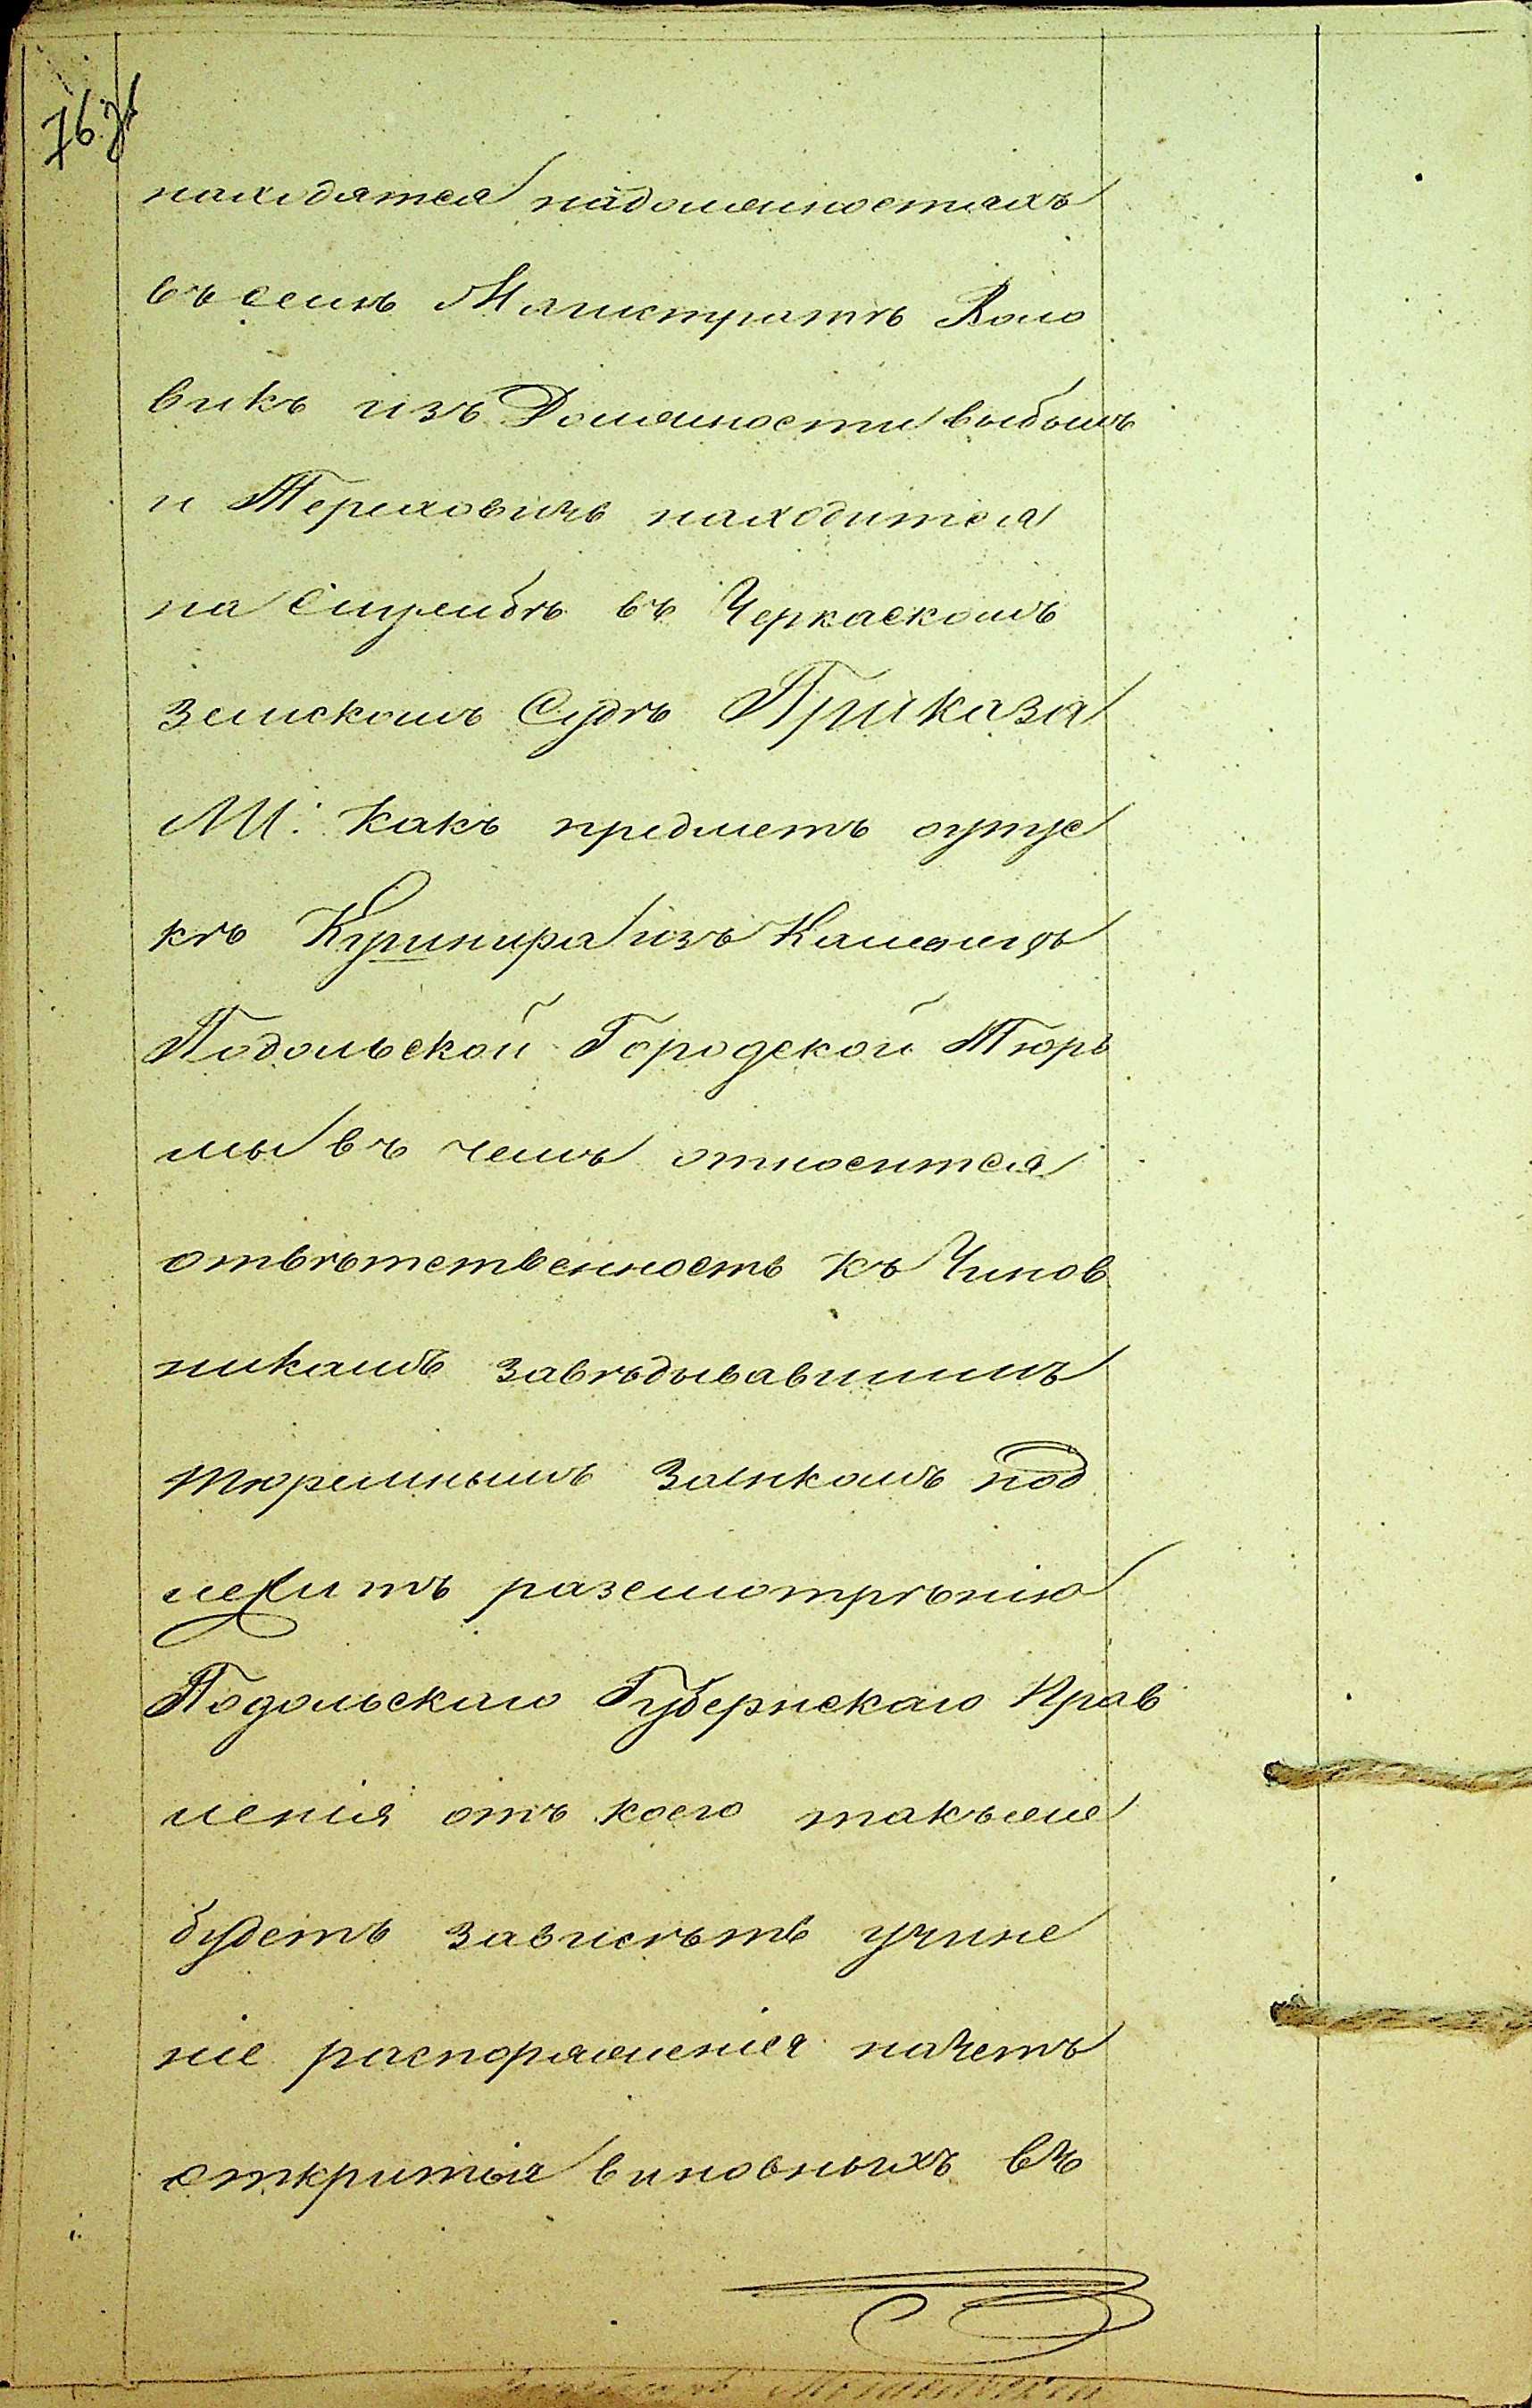 76 зв
находятся на должностяхъ
въ семъ Магистратѣ Воло
викъ изъ Должности выбылъ
и Терлховичъ находится
на Службѣ въ Черкаскомъ
земскомъ Судѣ Приказа
ли: какъ предметъ опус
кѣ Кушнира изъ Каменцъ
Подольской Городской Тюрь
мы въ чемъ относится
отвѣтственность къ Чинов
никамъ завѣдывавшимъ
тюремнымъ Замкомъ под
лежитъ разсмотрѣнію
Подольскаго Губернскаго Прав
ленія отъ коего такъже
будетъ зависѣть учине
ніе распоряженія на счетъ
открытія виновныхъ въ